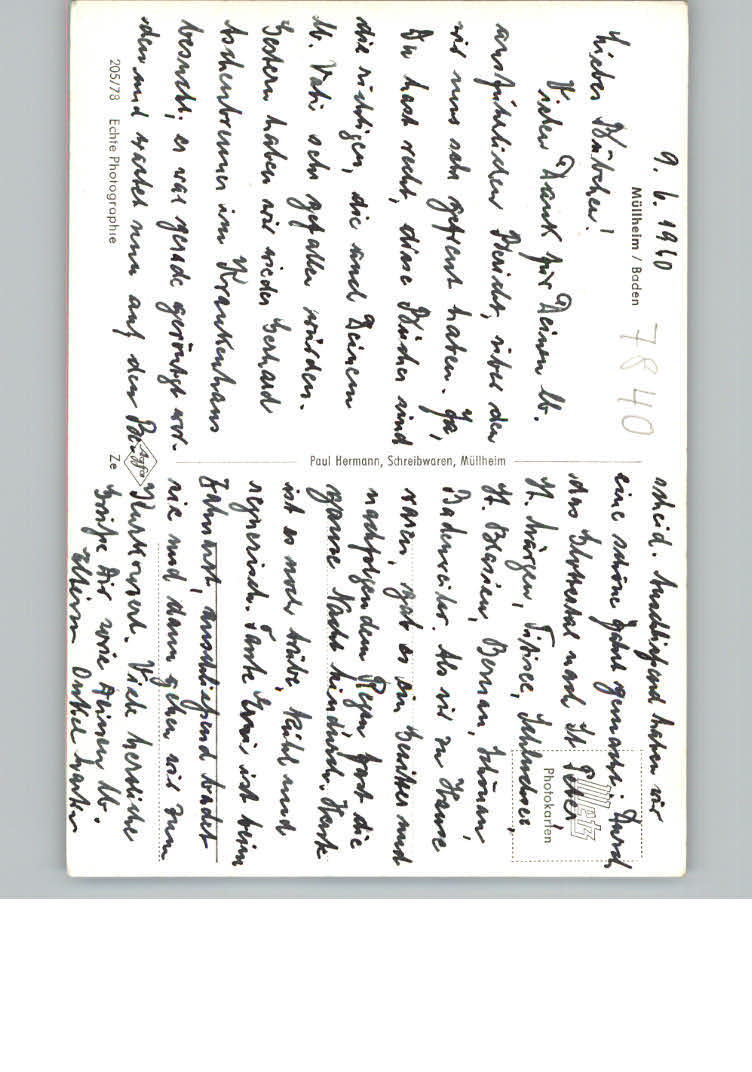 9. 6. 1960
Müllheim / Baden
7840
Liebes Bübchen!
Vielen Dank für Deinen lb.
ausführlichen Bericht, über den
wir uns sehr gefreut haben. Ja,
Du hast recht, diese Bücher sind
die richtigen, die und Deinem
lb. Vati sehr gefallen würden.
Gestern haben wir wieder Gerhard
Aschenbrenner im Krankenhaus
besucht; er war gerade geröntgt wor-
den und wartet nun auf den Be-
205/78 Echte Photographie
Agfa
Ze
Paul Hermann, Schreibwaren, Müllheim
scheid. Anschließend haben wir
eine schöne Fahrt gemacht: Durch
das Glottertal nach St. Peter,
St. Märgen, Titisee, Schluchsee,
St. Blasien, Bernau, Schönau,
Badenweiler. Als wir zu Hause
waren, gab es ein Gewitter und
nachfolgendem Regen fast die
ganze Nacht hindurch. Heute
ist es noch trübe, kühl und
regnerisch. Tante ist beim
Zahnarzt, anschließend badet
sie und dann gehen wir zum
Kurkonzert. Viele herzliche
Grüße Dir sowie Deinen lb.
Eltern Onkel
Metz
Photokarten